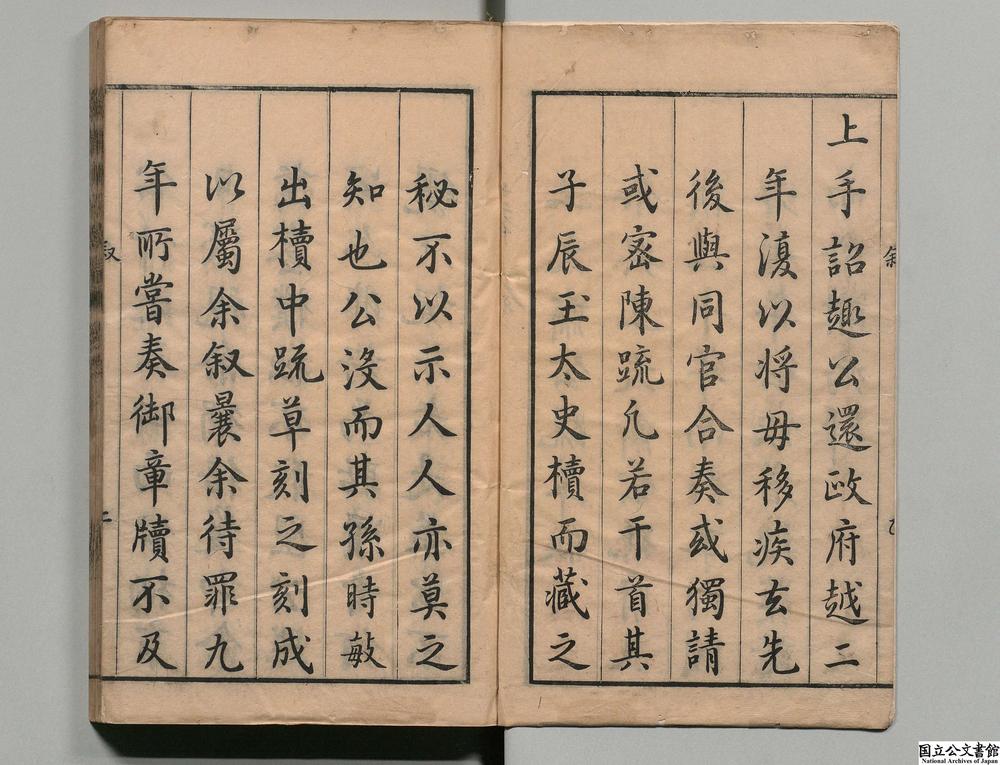 上手詔趣公還政府越二
年復以將毋移疾去先
後與同官合奏或獨請
或密陳疏凡若干首其
子辰玉太史櫝而藏之
秘不以示人人亦莫之
知也公沒而其孫時敏
出櫝中疏草刻之刻成
以屬余叙曩余待罪九
年所嘗奏御章牘不及
叙
二
国立公文書館
National Archives of Japan